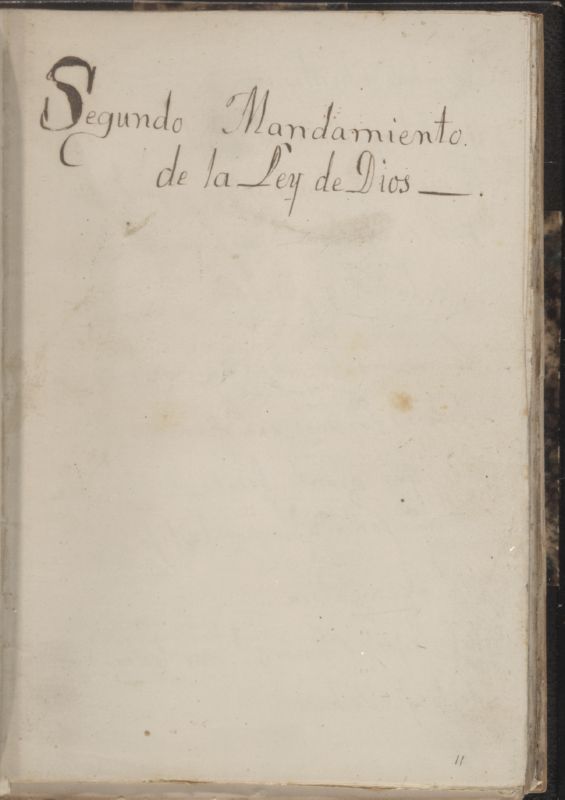 Segundo Mandamiento.
de la Ley de Dios —.
11